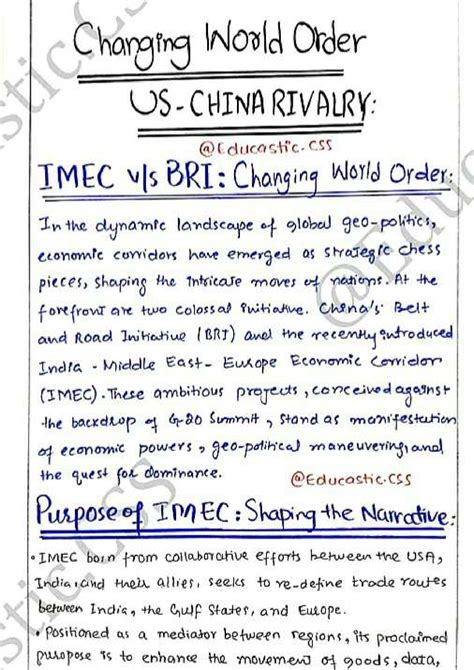 Changing World Order
US-CHINA RIVALRY:
@Educastic.CSS
IMEC v/s BRI: Changing World Order:
In the dynamic landscape of global geo-politics,
economic corridors have emerged as strategic chess
pieces, shaping the intricate moves of nations. At the
forefront are two colossal initiative. China's Belt
and Road Initiative (BRI) and the recently introduced
India - Middle East - Europe Economic Corridor
(IMEC). These ambitious projects, conceived against
the backdrop of G-20 Summit, stand as manifestation
of economic powers, geo-political maneuvering, and
the quest for dominance.
@Educastic.CSS
Purpose of IMEC: Shaping the Narrative:
• IMEC born from collaborative efforts between the USA,
India, and their allies, seeks to re-define trade routes
between India, the Gulf States, and Europe.
• Positioned as a mediator between regions, its proclaimed
purpose is to enhance the movement of goods, data,